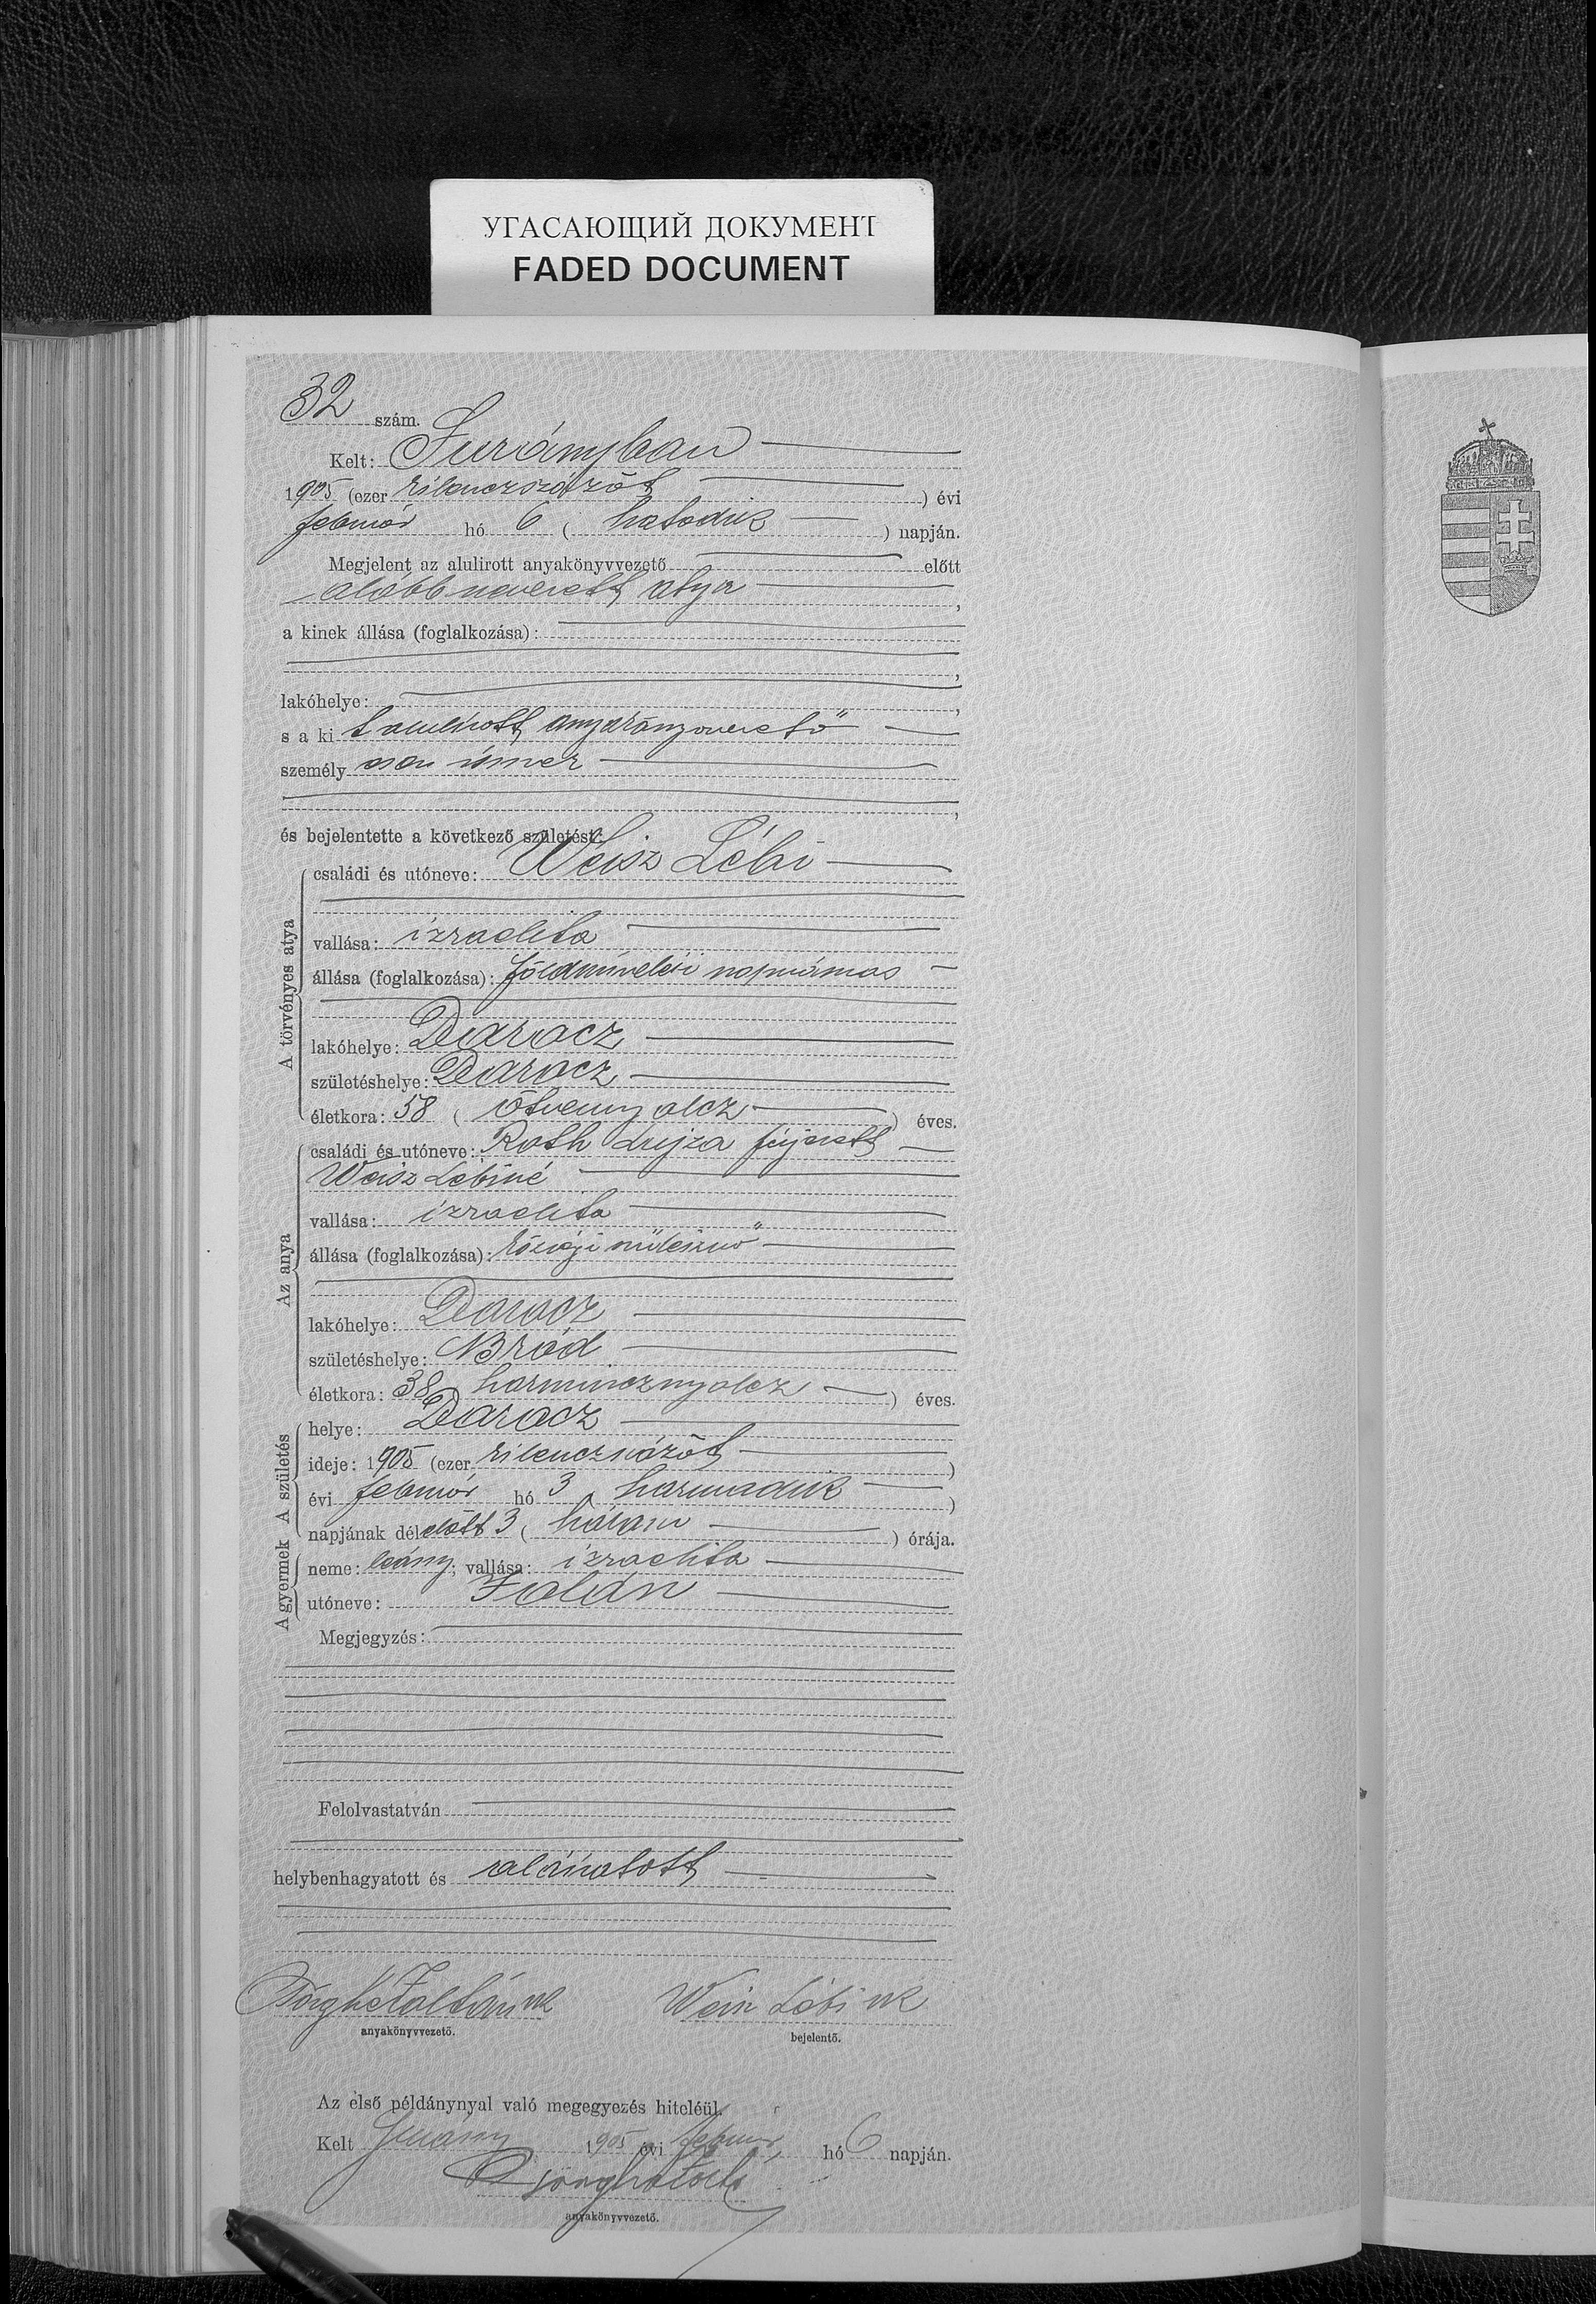 УГАСАЮЩИЙ ДОКУМЕНТ
FADED DOCUMENT
32 szám.
Kelt: Surányban
1905 (ezer kilenczszázöt ) évi
február hó 6 ( hatodik ) napján.
Megjelent az alulirott anyakönyvvezető előtt
alább nevezett atya ,
a kinek állása (foglalkozása):
,
lakóhelye: ,
s a ki t alulirott anyakönyvvezető
személy esen ismer
,
és bejelentette a következő születést:
A törvényes atya
családi és utóneve: Weisz Lébi
vallása: izraelita
állása (foglalkozása): földmivelési napszámos
lakóhelye: Darócz
születéshelye: Darócz
életkora: 58 ( ötvennyolcz ) éves.
Az anya
családi és utóneve: Roth Lujza férjezett
Weisz Lébiné
vallása: izraelita
állása (foglalkozása):
lakóhelye: Darócz
születéshelye: Bród
életkora: 38 harmincznyolcz ) éves.
A születés
helye: Darócz
ideje: 1905 (ezer kilenczszázöt )
évi február hó 3 ( harmadik )
napjának délelőtt 3 ( három ) órája.
A gyermek
neme: leány; vallása: izraelita
utóneve: Zolán
Megjegyzés:
Felolvastatván
helybenhagyatott és aláiratott
Zoltán sk Weisz Lébi sk
anyakönyvvezető. bejelentő.
Az első példánynyal való megegyezés hiteléül.
Kelt Surány 1905 évi február hó 6 napján.
anyakönyvvezető.